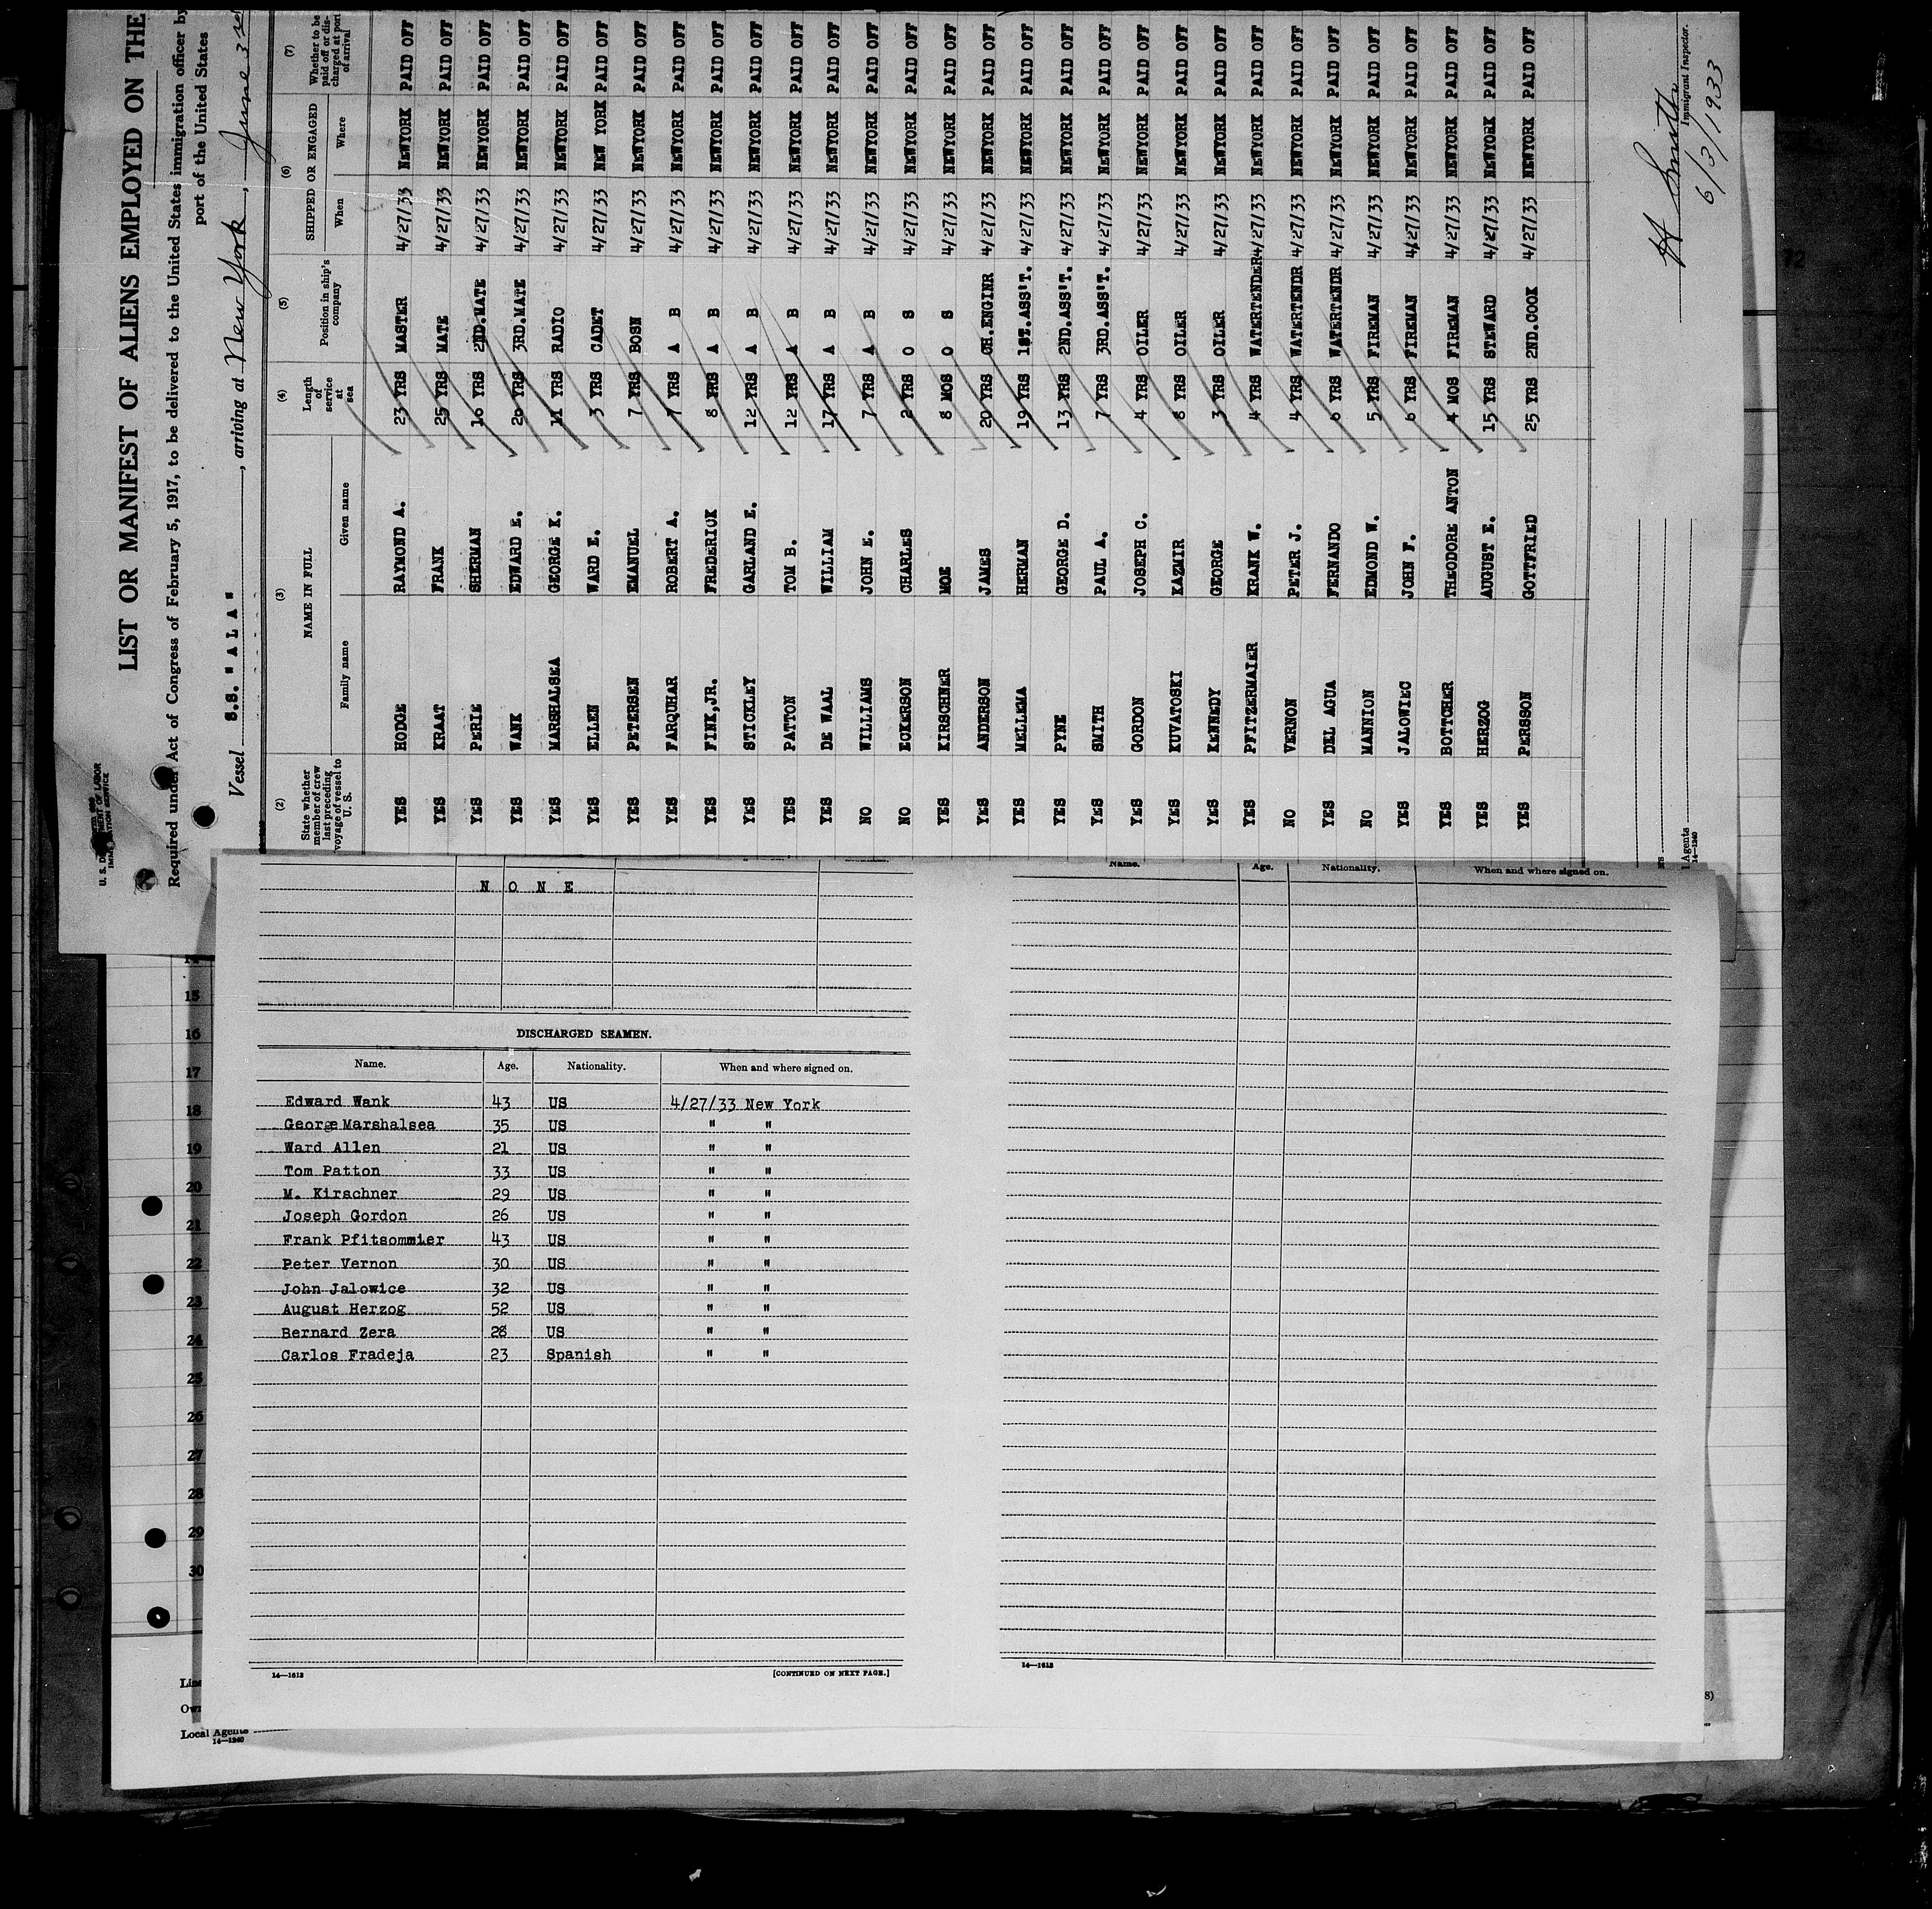 LIST OR MANIFEST OF ALIENS EMPLOYED ON THE
Required under Act of Congress of February 5, 1917, to be delivered to the United States immigration officer by
port of the United States
Vessel S.S. "ALA", arriving at New York, June 3rd
U. S. DEPARTMENT OF LABOR
(2) (3) (4) (5) (6) (7)
State whether member of crew last preceding voyage of vessel to U. S. NAME IN FULL Family name Given name Length of service at sea Position in ship's company SHIPPED OR ENGAGED When Where Whether to be paid off or discharged at port of arrival
YES HODGE RAYMOND A. 23 YRS MASTER 4/27/33 NEWYORK PAID OFF
YES KRAAT FRANK 25 YRS MATE 4/27/33 NEWYORK PAID OFF
YES PERIE SHERMAN 16 YRS 2ND.MATE 4/27/33 NEWYORK PAID OFF
YES WANK EDWARD E. 20 YRS 3RD.MATE 4/27/33 NEWYORK PAID OFF
YES MARSHALSEA GEORGE K. 11 YRS RADIO 4/27/33 NEWYORK PAID OFF
YES ELLEN WARD E. 3 YRS CADET 4/27/33 NEW YORK PAID OFF
YES PETERSEN EMANUEL 7 YRS BOSN 4/27/33 NEWYORK PAID OFF
YES FARQUHAR ROBERT A. 7 YRS A B 4/27/33 NEWYORK PAID OFF
YES FINK,JR. FREDERICK 8 YRS A B 4/27/33 NEWYORK PAID OFF
YES STICKLEY GARLAND E. 12 YRS A B 4/27/33 NEWYORK PAID OFF
YES PATTON TOM B. 12 YRS A B 4/27/33 NEWYORK PAID OFF
YES DE WAAL WILLIAM 17 YRS A B 4/27/33 NEWYORK PAID OFF
NO WILLIAMS JOHN E. 7 YRS A B 4/27/33 NEWYORK PAID OFF
NO ECKERSON CHARLES 2 YRS O S 4/27/33 NEWYORK PAID OFF
YES KIRSCHNER MOE 8 MOS O S 4/27/33 NEWYORK PAID OFF
YES ANDERSON JAMES 20 YRS CH.ENGINR 4/27/33 NEWYORK PAID OFF
YES MELLEMA HERMAN 19 YRS 1ST.ASS'T. 4/27/33 NEWYORK PAID OFF
YES PYNE GEORGE D. 13 YRS 2ND.ASS'T. 4/27/33 NEWYORK PAID OFF
YES SMITH PAUL A. 7 YRS 3RD.ASS'T. 4/27/33 NEWYORK PAID OFF
YES GORDON JOSEPH C. 4 YRS OILER 4/27/33 NEWYORK PAID OFF
YES KUVATOSKI KAZMIR 8 YRS OILER 4/27/33 NEWYORK PAID OFF
YES KENNEDY GEORGE 3 YRS OILER 4/27/33 NEWYORK PAID OFF
YES PFITZERMAIER KRANK W. 4 YRS WATERTENDER 4/27/33 NEWYORK PAID OFF
NO VERNON PETER J. 4 YRS WATERTENDR 4/27/33 NEWYORK PAID OFF
YES DEL AGUA FERNANDO 6 YRS WATERTENDR 4/27/33 NEWYORK PAID OFF
NO MANNION EDMOND W. 5 YRS FIREMAN 4/27/33 NEWYORK PAID OFF
YES JALOWIEC JOHN F. 6 YRS FIREMAN 4/27/33 NEWYORK PAID OFF
YES BOTTCHER THEODORE ANTON 4 MOS FIREMAN 4/27/33 NEWYORK PAID OFF
YES HERZOG AUGUST E. 15 YRS STEWARD 4/27/33 NEWYORK PAID OFF
YES PERSSON GOTTFRIED 25 YRS 2ND.COOK 4/27/33 NEWYORK PAID OFF
Smith
Immigrant Inspector.
6/3/1933
Agents
14—1240
72
N O N E
DISCHARGED SEAMEN.
Name. Age. Nationality. When and where signed on.
Edward Wank 43 US 4/27/33 New York
George Marshalsea 35 US " "
Ward Allen 21 US " "
Tom Patton 33 US " "
M. Kirschner 29 US " "
Joseph Gordon 26 US " "
Frank Pfitsommier 43 US " "
Peter Vernon 30 US " "
John Jalowice 32 US " "
August Herzog 52 US " "
Bernard Zera 28 US " "
Carlos Fradeja 23 Spanish " "
14—1613 [CONTINUED ON NEXT PAGE.]
Name. Age. Nationality. When and where signed on.
14—1613
15
16
17
18
19
20
21
22
23
24
25
26
27
28
29
30
Local Agents
14—1240